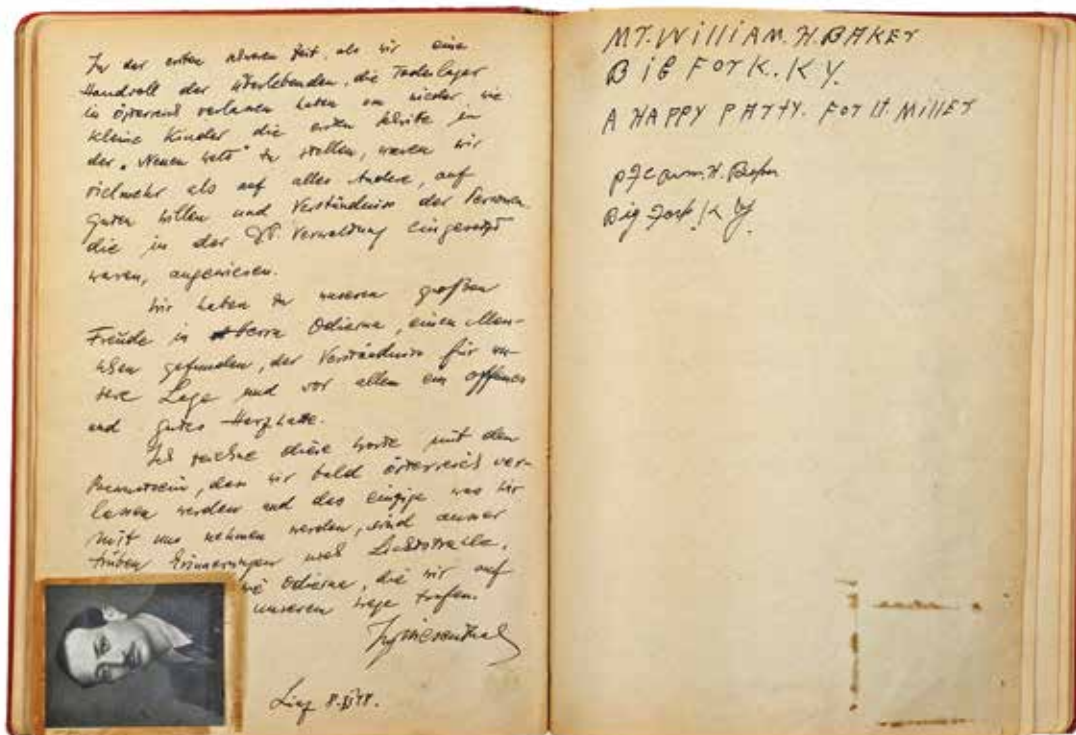 In der ersten schweren Zeit, als wir eine
Handvoll der Überlebenden, die Todeslager
in Österreich verlassen haben um wieder wie
kleine Kinder die ersten Schritte in
der „Neuen Welt" zu stellen, waren wir
vielmehr als auf alles Andere, auf
guten Willen und Verständnis der Personen
die in der DP Verwaltung eingesetzt
waren, angewiesen.
Wir haben zu unseren großen
Freude in Herrn Odierna, einen Men-
schen gefunden, der Verständnis für un-
sere Lage und vor allem ein offenes
und gutes Herz hatte.
Ich zeichne diese Worte mit dem
Bewusstsein, dass wir bald Österreich ver-
lassen werden und das einzige was wir
mit uns nehmen werden, sind ausser
trüben Erinnerungen noch Lichtstrahle,
wie Odierna, die wir auf
unserem Wege trafen.
Ing Wiesenthal
Linz 8. 48.
MT. WilliAM. H. BAKET
BiG FOTK. KY.
A HAPPY PATTY. FOT LT. MilleT
pfc wm. H. Baker
Big Fork. Ky.